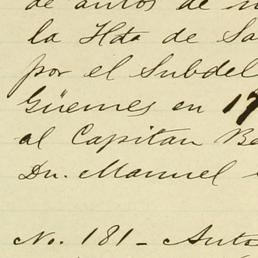 de autos de
la Hda de Sa
por el Subdel
Güemes en 17
al Capitan Be
Dn. Manuel
No. 181 - Auto